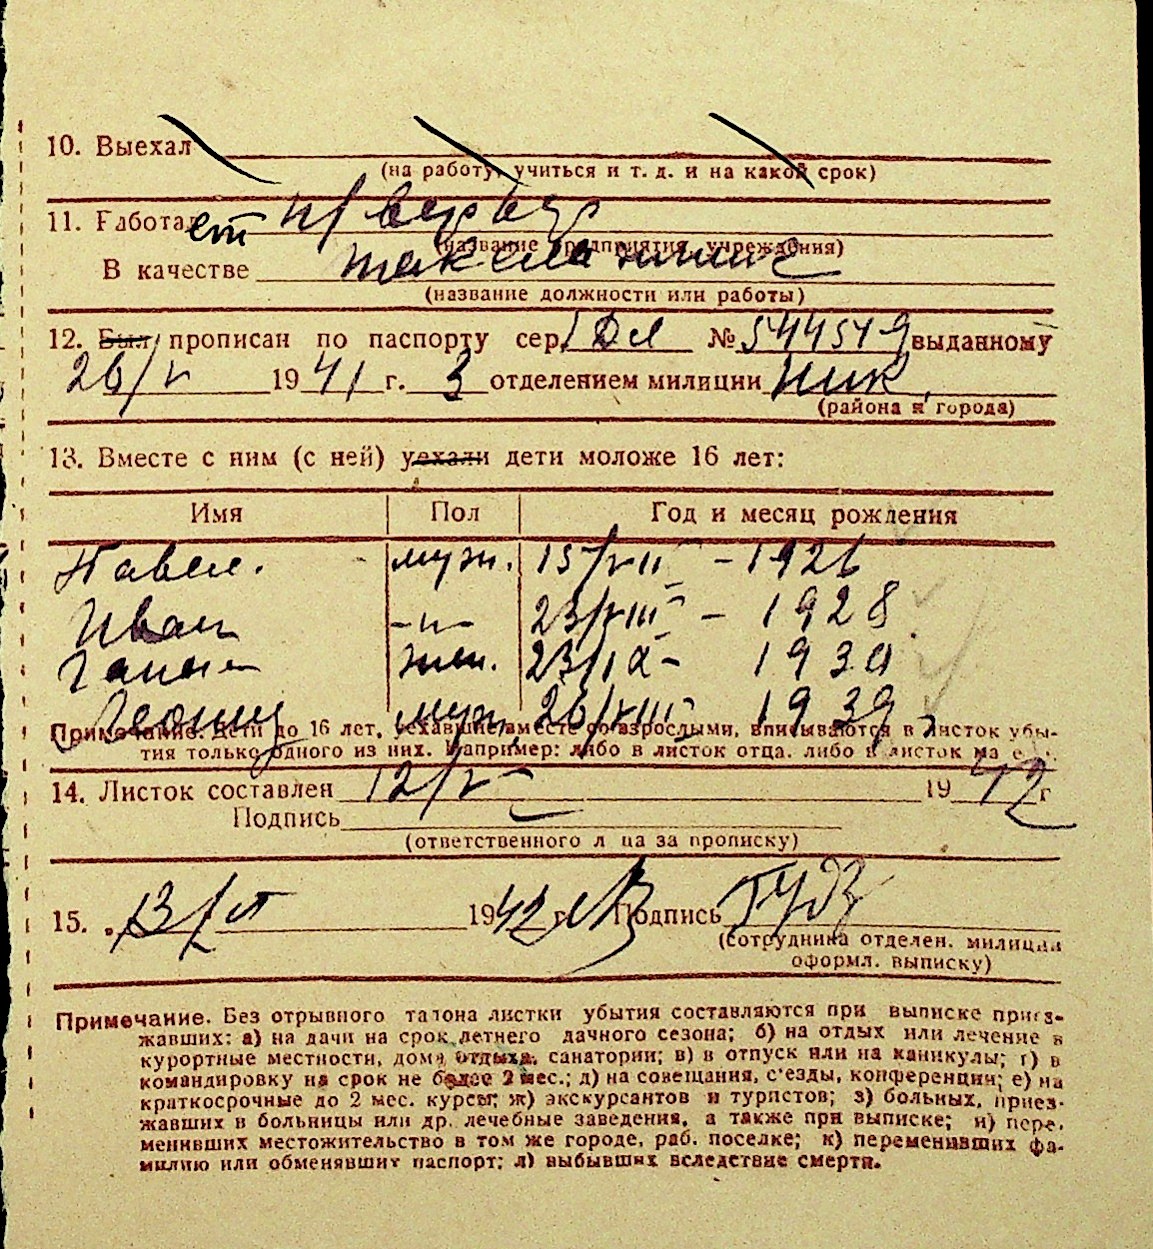 10. Выехал
(на работу, учиться и т. д. и на какой срок)
11. Работает п/я
(название предприятия, учреждения)
В качестве такелажник
(название должности или работы)
12. Был прописан по паспорту сер. № 544519 выданному
26/V 1941 г. 3 отделением милиции Ник.
(района и города)
13. Вместе с ним (с ней) уехали дети моложе 16 лет:
Имя Пол Год и месяц рождения
Павел. муж. 15/VII – 1926
Иван -"- 23/VIII – 1928
Галина жен. 23/IX – 1930
Леонид муж. 26/VIII 1939
Примечание. Дети до 16 лет, уехавшие вместе со взрослыми, вписываются в листок убы-
тия только одного из них. Например: либо в листок отца, либо в листок матери.
14. Листок составлен 12/V 1942 г
Подпись
(ответственного лица за прописку)
15. 13/VI 1942 г. Подпись
(сотрудника отделен. милиции
оформл. выписку)
Примечание. Без отрывного талона листки убытия составляются при выписке приез-
жавших: а) на дачи на срок летнего дачного сезона; б) на отдых или лечение в
курортные местности, дома отдыха, санатории; в) в отпуск или на каникулы; г) в
командировку на срок не более 2 мес.; д) на совещания, с'езды, конференции; е) на
краткосрочные до 2 мес. курсы; ж) экскурсантов и туристов; з) больных, приез-
жавших в больницы или др. лечебные заведения, а также при выписке; и) пере-
менивших местожительство в том же городе, раб. поселке; к) переменивших фа-
милию или обменявшит паспорт; л) выбывших вследствие смерти.